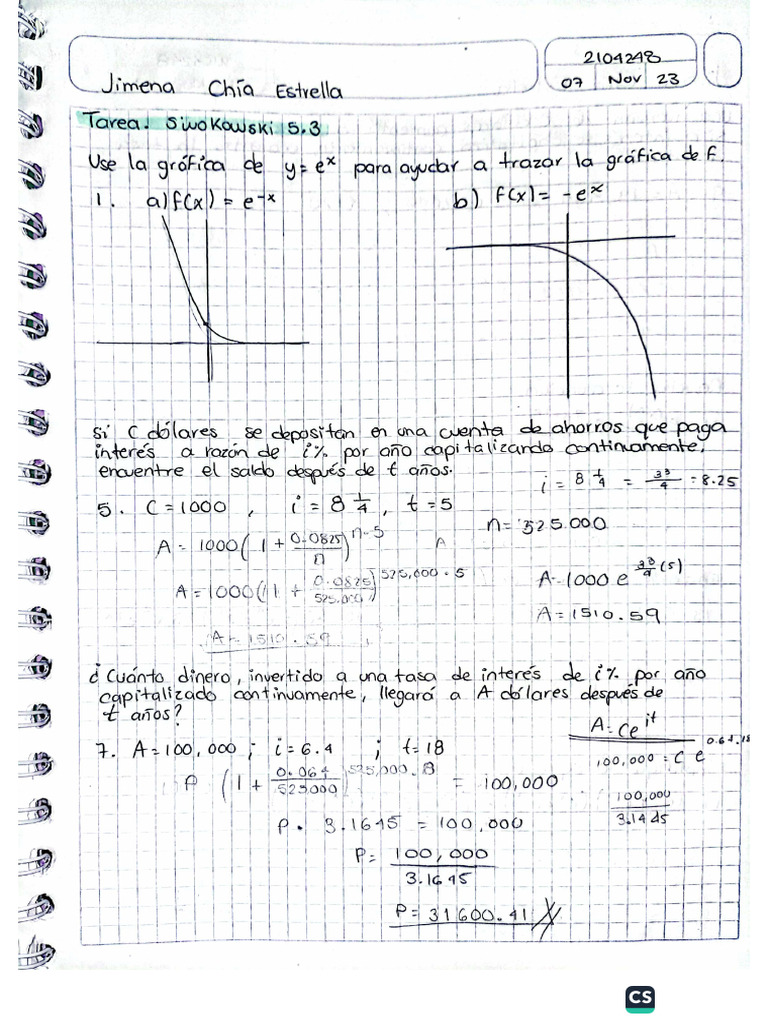 Jimena Chía Estrella
2104248
07 Nov 23
Tarea. Swokowski 5.3
Use la gráfica de y = e^x para ayudar a trazar la gráfica de f.
1. a) f(x) = e^-x
b) f(x) = -e^x
Si C dólares se depositan en una cuenta de ahorros que paga
interés a razón de i% por año capitalizando continuamente,
encuentre el saldo después de t años.
5. C = 1000, i = 8 1/4, t = 5
i = 8 1/4 = 33/4 = 8.25
n = 525.000
A = 1000(1 + 0.0825/n)^n·5
A
A = 1000(1 + 0.0825/525.000)^525,000·5
A = 1510.59
A = 1000 e^33/4(5)
A = 1510.59
¿Cuánto dinero, invertido a una tasa de interés de i% por año
capitalizado continuamente, llegará a A dólares después de
t años?
7. A = 100,000; i = 6.4; t = 18
A = Ce^it
P (1 + 0.064/525000)^525,000.8 = 100,000
100,000 = C e^0.64.18
P. 3.1645 = 100,000
100,000/3.1445
P = 100,000/3.1645
P = 31600.41
CS